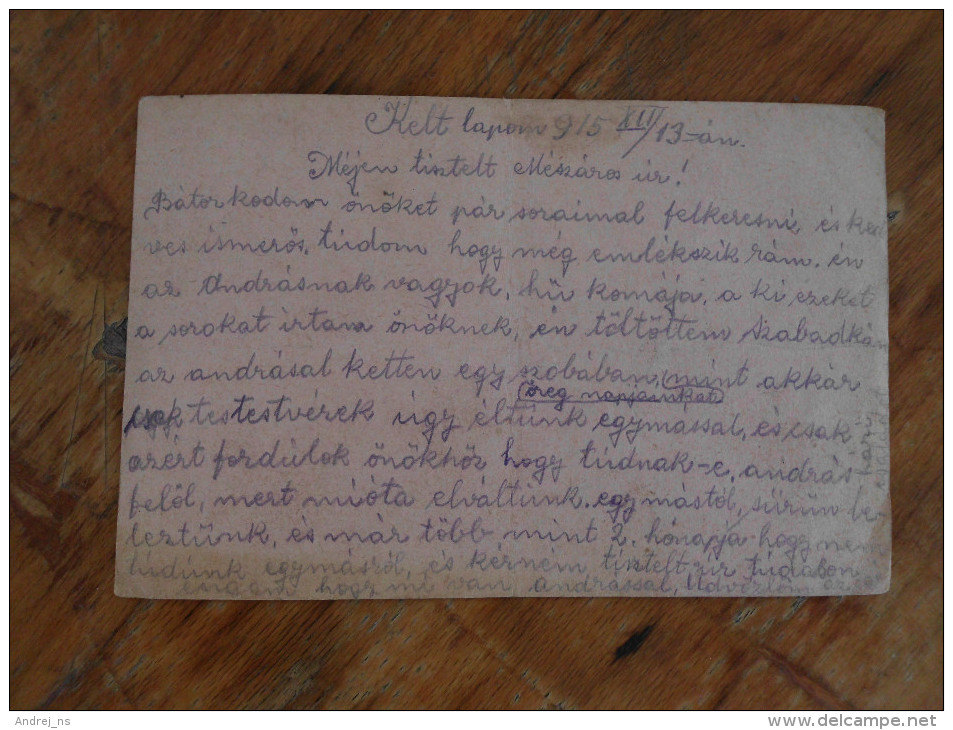 Kelt lapom 915 XII/13-án.
Méjen tisztelt Mészáros úr!
Bátorkodom önöket pár soraimal felkeresni, és ked
ves ismerős. túdom hogy még emlékszik rám. én
az Andrásnak vagyok, hű komája, a ki ezeket
a sorokat írtam önöknek, én töltöttem Szabadkán
az andrásal ketten egy szobában, mint akkár
öreg napjainkat
testestvérek úgy éltünk egymással, és csak
azért fordúlok önökhöz hogy túdnak-e, andrás
felől, mert mióta elváltünk egymástól, sürün le-
leztünk, és már több mint 2. hónapja hogy nem
túdúnk egymásról, és kérném tisztelt úr
hogy mi van andrással, Üdvözlöm az
egész
Andrej_ns
www.delcampe.net